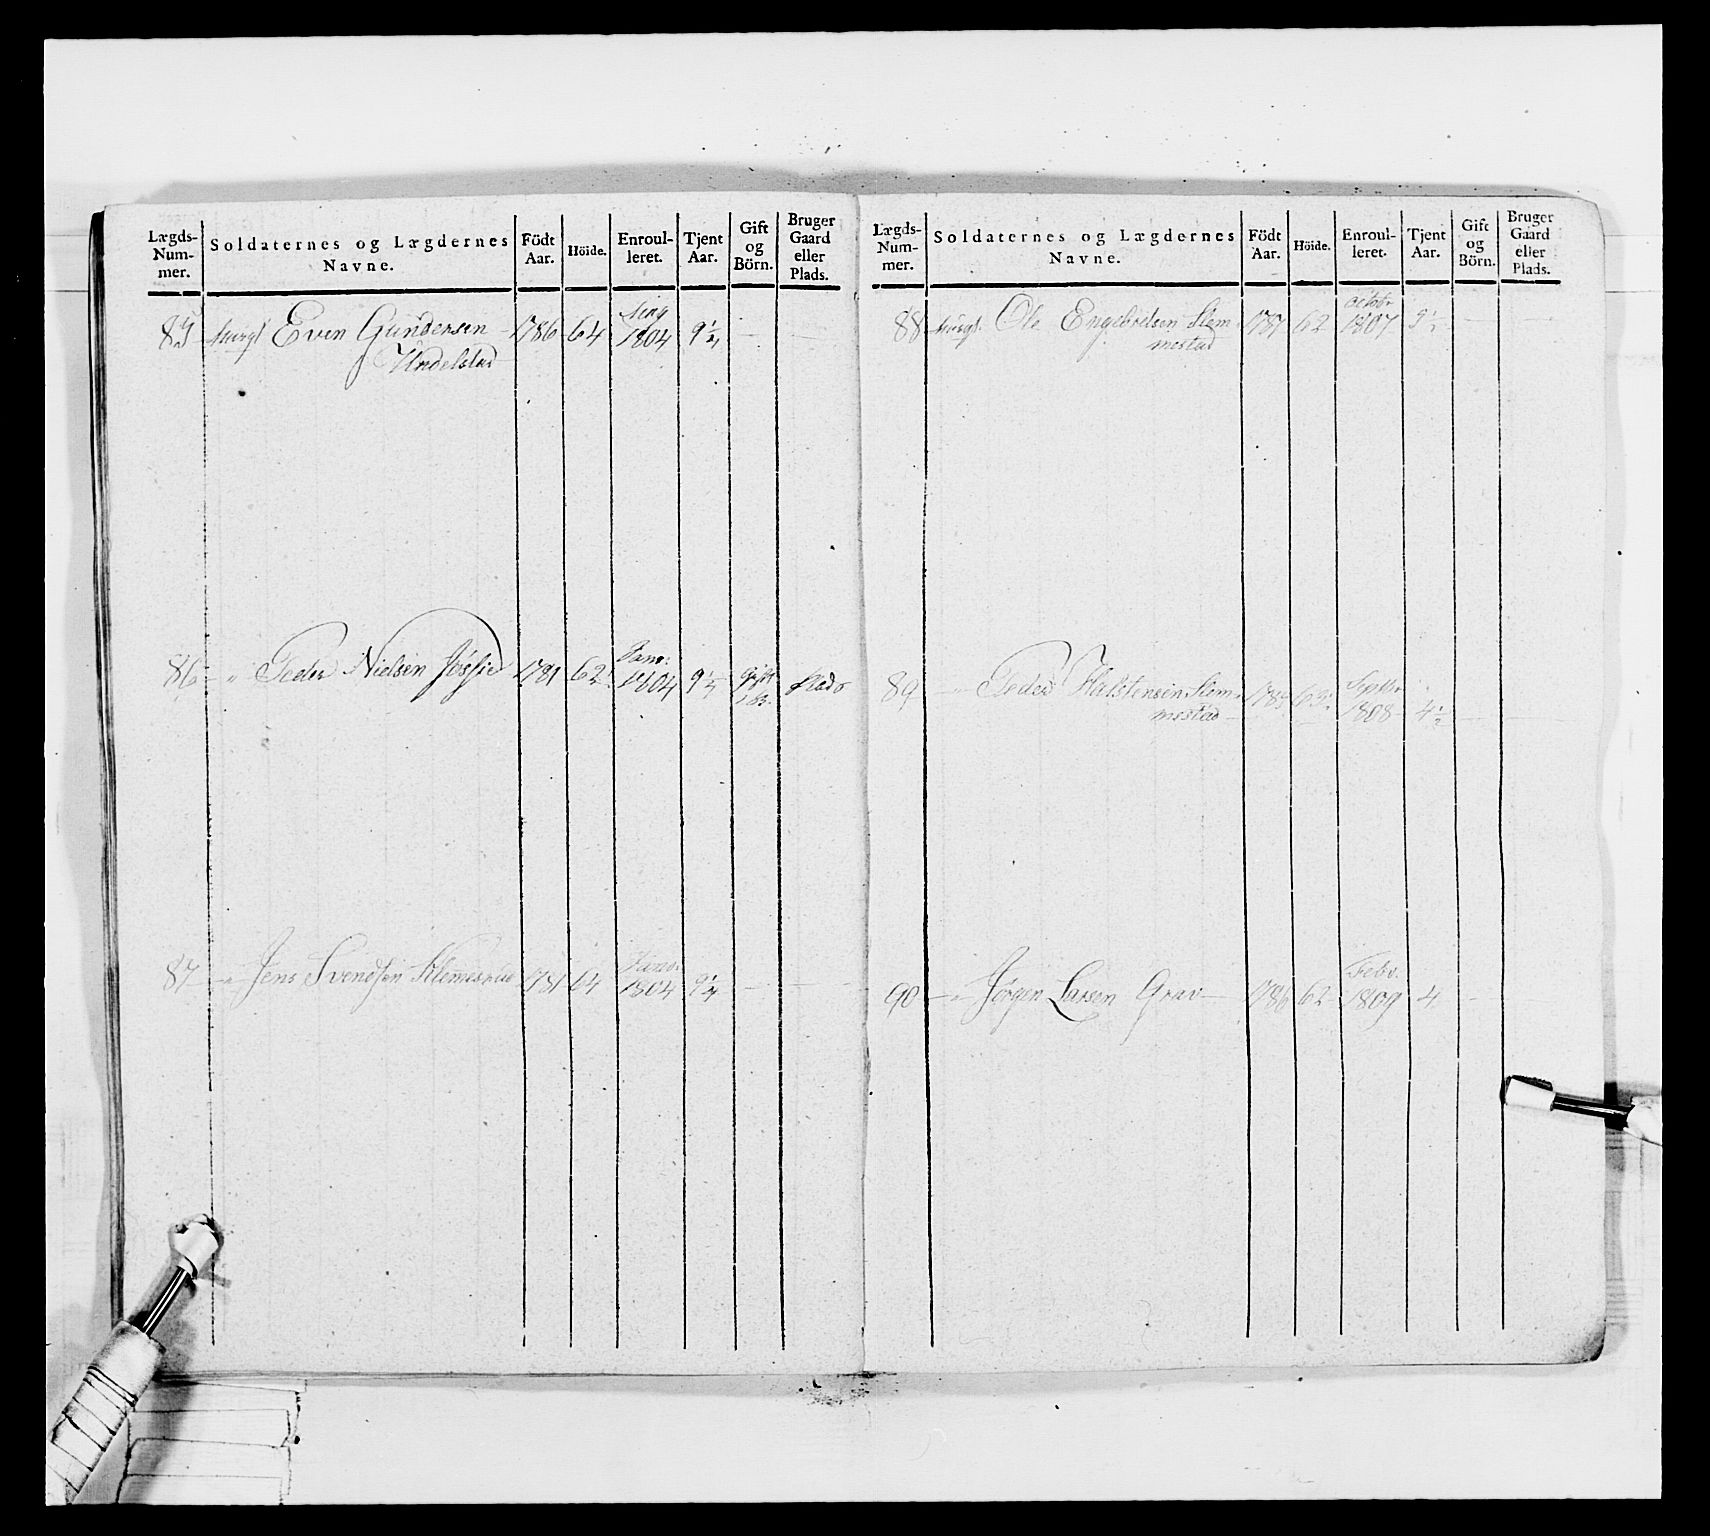 Lægds-Num-mer. Soldaternes og Lægdernes Navne. Födt Aar. Höide. Enroul-leret. Tjent Aar. Gift og Börn. Bruger Gaard eller Plads.
85 Even Gundersen 1786 64 1804 9¼ — —
Undelstad
86 " Peder Nielsen 1781 62 Janv: 1804 9¼ Gift 1 B. Plads
87 — " Jens Svendsen Klemesrud 1781 64 Janv. 1804 9¼ — —
Lægds-Num-mer. Soldaternes og Lægdernes Navne. Födt Aar. Höide. Enroul-leret. Tjent Aar. Gift og Börn. Bruger Gaard eller Plads.
88 Ole Engebretsen Slem 1787 62 octobr 1807 — —
mestad
89 — " Peder Halstensen Slem Septbr 1808 4½ —
mestad —
90 — " Jørgen Larsen Grav — 1786 62 Febr. 1809 4 —